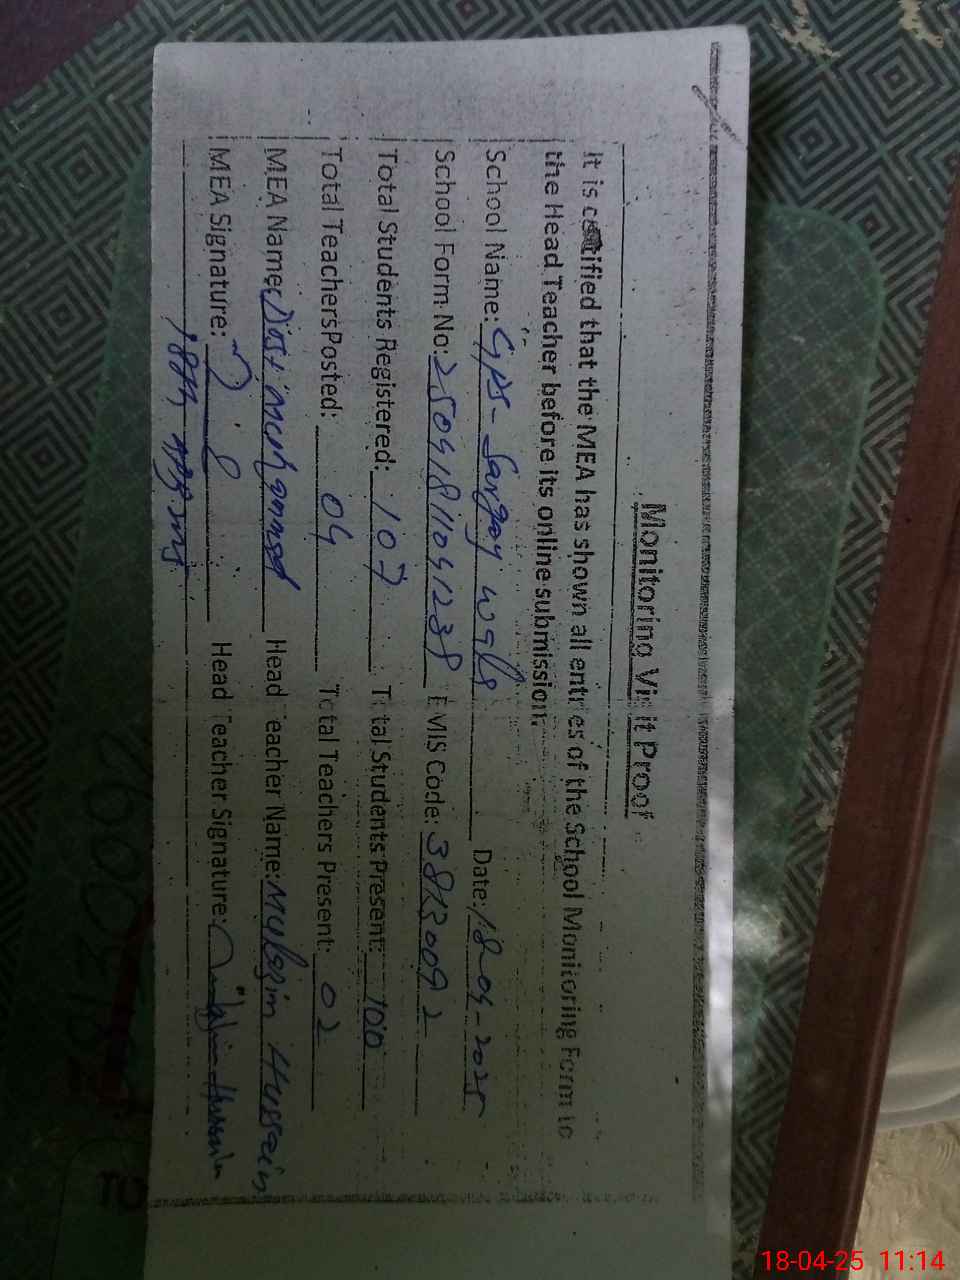 Monitoring Visit Proof
It is certified that the MEA has shown all entries of the School Monitoring Form to
the Head Teacher before its online submission.
School Name: GPS- Date: 18-04-2025
School Form No: 25041811041238 EMIS Code: 38130092
Total Students Registered: 107 Total Students Present: 100
Total Teachers Posted: 04 Total Teachers Present: 02
MEA Name: Muhammad Head Teacher Name: Mohsin Hussain
MEA Signature: Head Teacher Signature: Hussain
TO
18-04-25 11:14